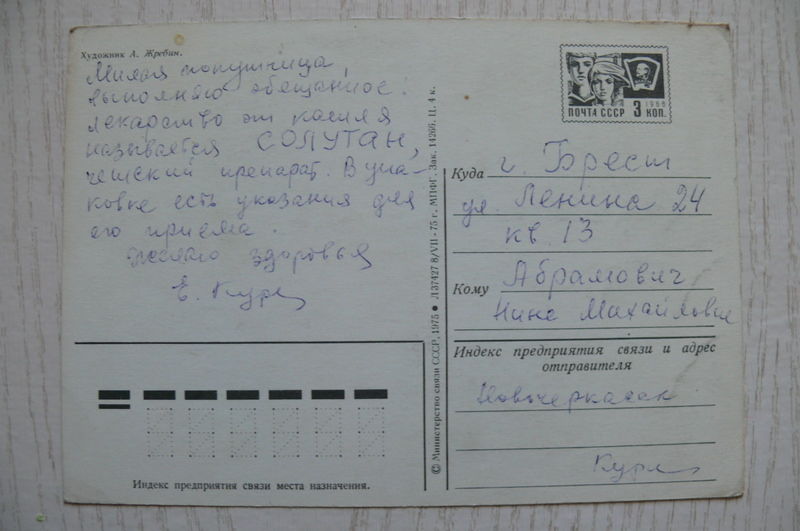 Художник А. Жребин.
Милая попутчица,
выполняю обещанное:
лекарство от кашля
называется СОЛУТАН,
чешский препарат. В упа-
ковке есть указания для
его приема.
Желаю здоровья
Е.
ПОЧТА СССР 3 КОП.
1966
Куда г. Брест
ул. Ленина 24
кв. 13
Кому Абрамович
Нине Михайловне
Индекс предприятия связи и адрес
отправителя
Новочеркасск
Индекс предприятия связи места назначения.
© Министерство связи СССР, 1975 ● Л 37427 8/VII - 75 г. МПФГ. Зак. 14266. Ц. 4 к.